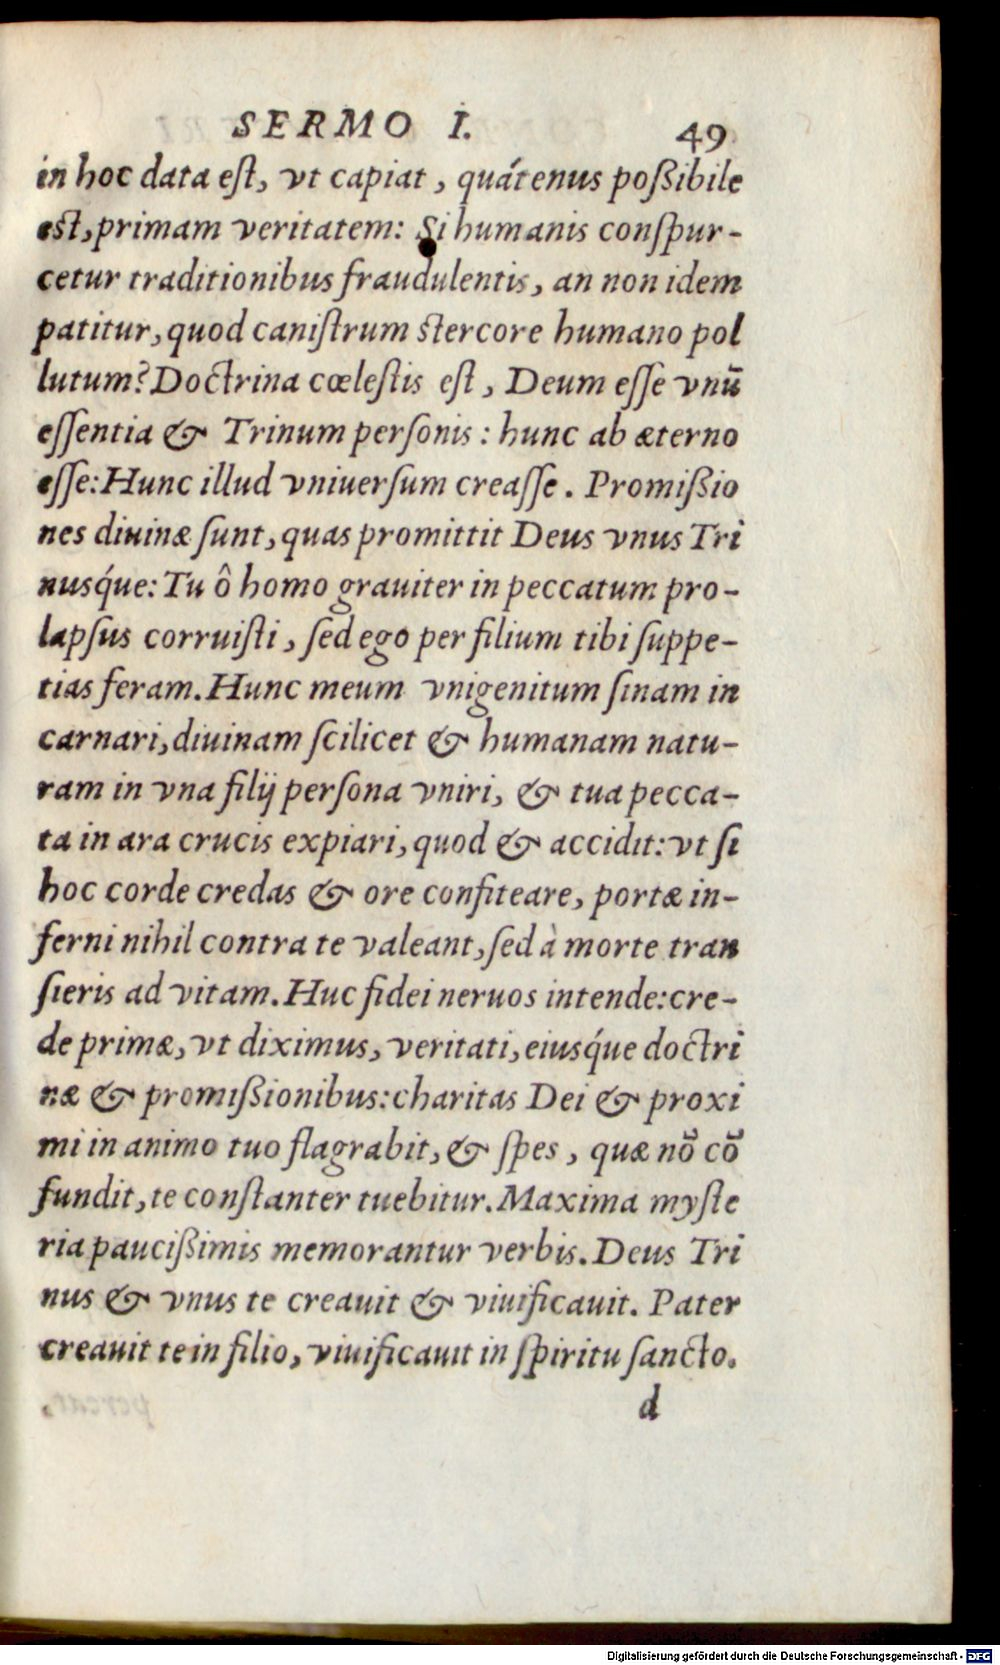 SERMO I. 49
in hoc data eſt, vt capiat, quátenus poßibile
eſt, primam veritatem: Si humanis conſpur-
cetur traditionibus fraudulentis, an non idem
patitur, quod caniſtrum ſtercore humano pol
lutum? Doctrina cœleſtis eſt, Deum eſſe vnũ
eſſentia & Trinum perſonis: hunc ab æterno
eſſe: Hunc illud vniuerſum creaſſe. Promißio
nes diuinæ ſunt, quas promittit Deus vnus Tri
nusq́ue: Tu ô homo grauiter in peccatum pro-
lapſus corruiſti, ſed ego per filium tibi ſuppe-
tias feram. Hunc meum vnigenitum ſinam in
carnari, diuinam ſcilicet & humanam natu-
ram in vna filij perſona vniri, & tua pecca-
ta in ara crucis expiari, quod & accidit: vt ſi
hoc corde credas & ore confiteare, portæ in-
ferni nihil contra te valeant, ſed à morte tran
ſieris ad vitam. Huc fidei neruos intende: cre-
de primæ, vt diximus, veritati, eiusq́ue doctri
næ & promißionibus: charitas Dei & proxi
mi in animo tuo flagrabit, & ſpes, quæ nõ cõ
fundit, te conſtanter tuebitur. Maxima myſte
ria paucißimis memorantur verbis. Deus Tri
nus & vnus te creauit & viuificauit. Pater
creauit te in filio, viuificauit in ſpiritu ſancto.
d
Digitalisierung gefördert durch die Deutsche Forschungsgemeinschaft - DFG